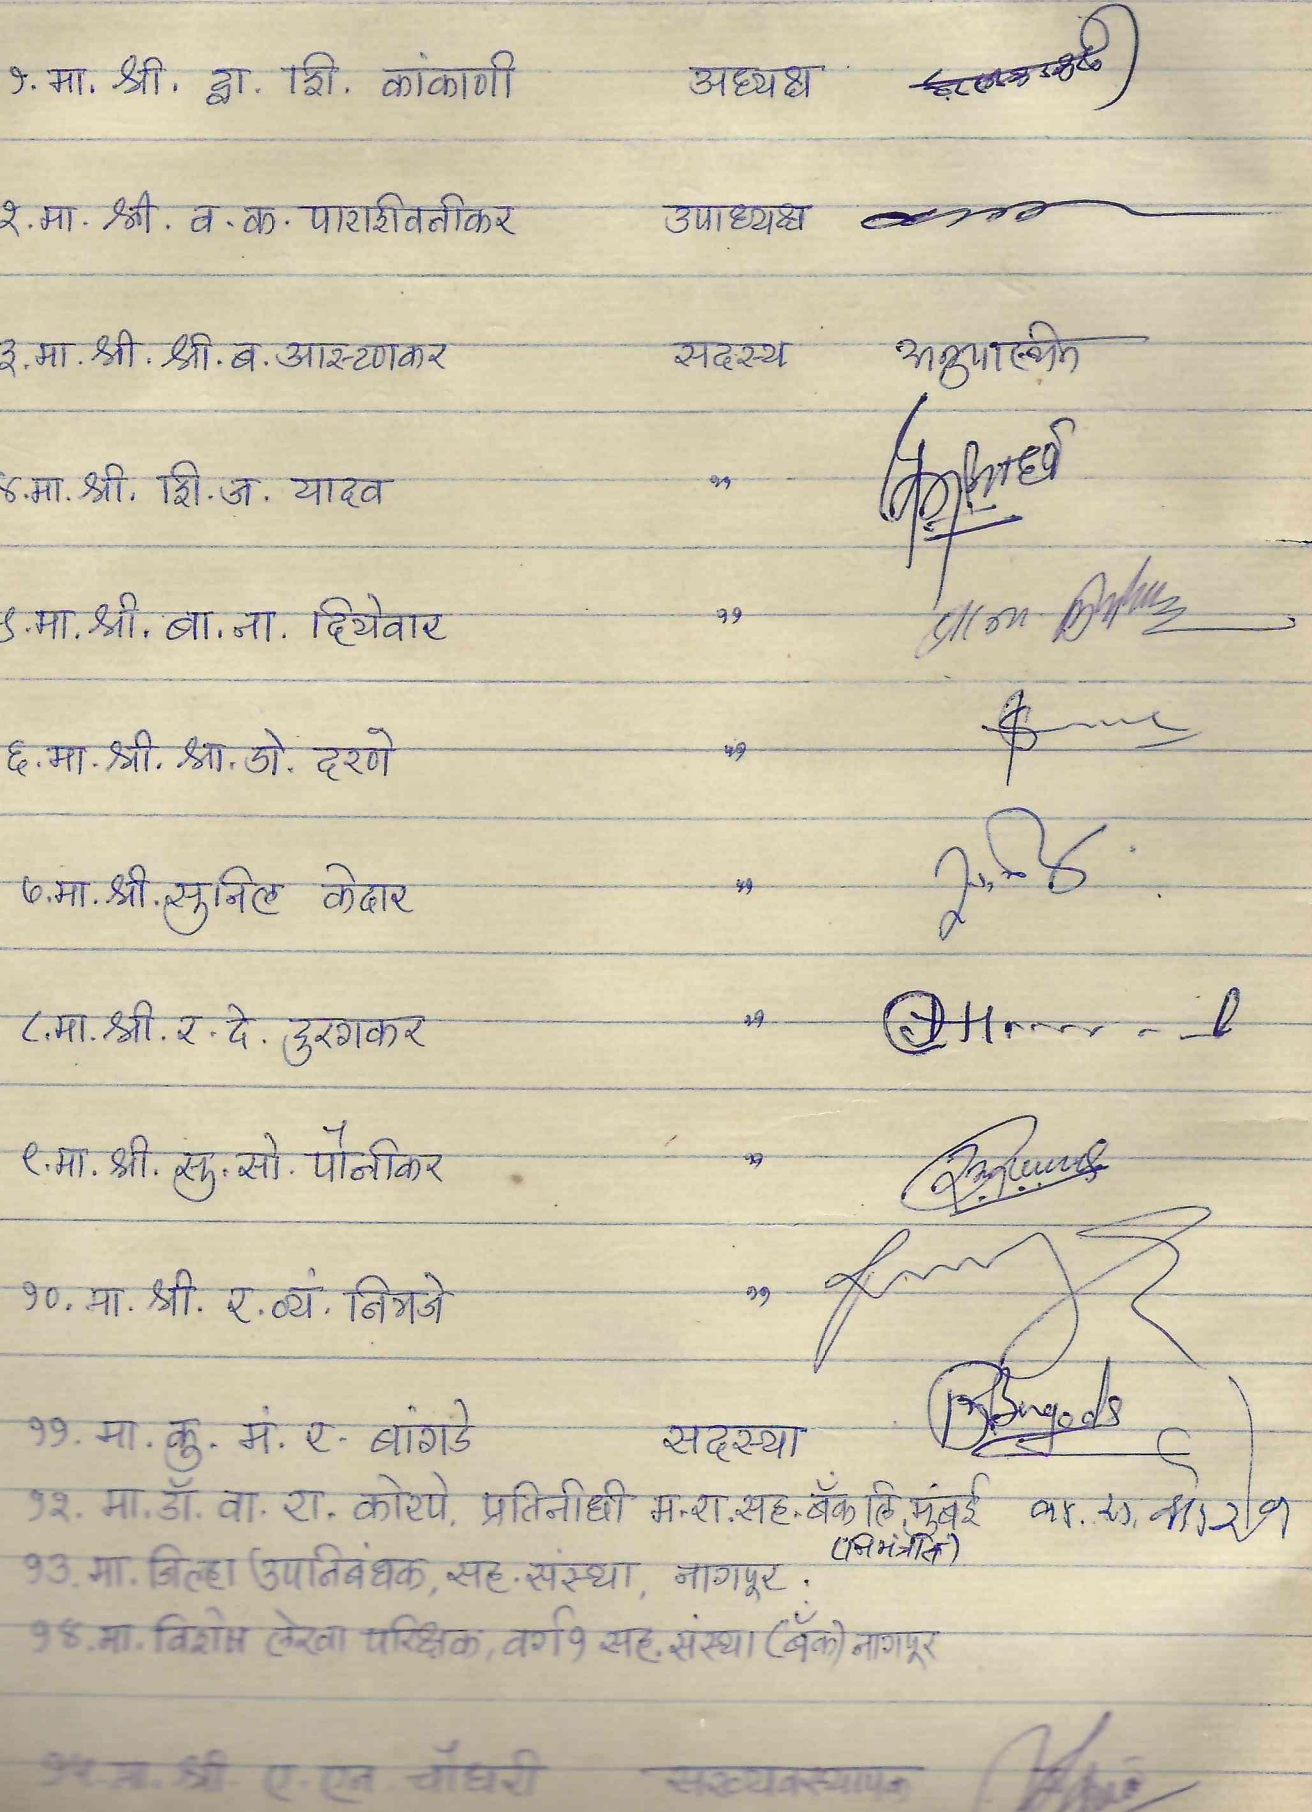 १. मा. श्री. द्वा. शि. कांकाणी अध्यक्ष
२. मा. श्री. व. क. पाराशीवनीकर उपाध्यक्ष
३. मा. श्री. श्री. ब. आस्टणकर सदस्य अनुपास्थीत
४. मा. श्री. शि. ज. यादव "
५. मा. श्री. बा. ना. दियेवार "
६. मा. श्री. श्रा. डो. दरणे "
७. मा. श्री. सुनिल केदार "
८. मा. श्री. र. दे. दुरगकर "
९. मा. श्री. सु. सो. पौनीकर "
१०. मा. श्री. ए. व्यं. निमजे "
११. मा. कु. मं. ए. बांगडे सदस्या
१२. मा. डॉ. वा. रा. कोरपे, प्रतिनीधी म. रा. सह. बँक लि. मुंबई
(निमंत्रीत)
१३. मा. जिल्हा उपनिबंधक, सह. संस्था, नागपूर.
१४. मा. विशेष लेखा परिक्षक, वर्ग १ सह. संस्था (बँक) नागपूर
१५. मा. श्री. ए. एन. चौधरी सरव्यवस्थापक